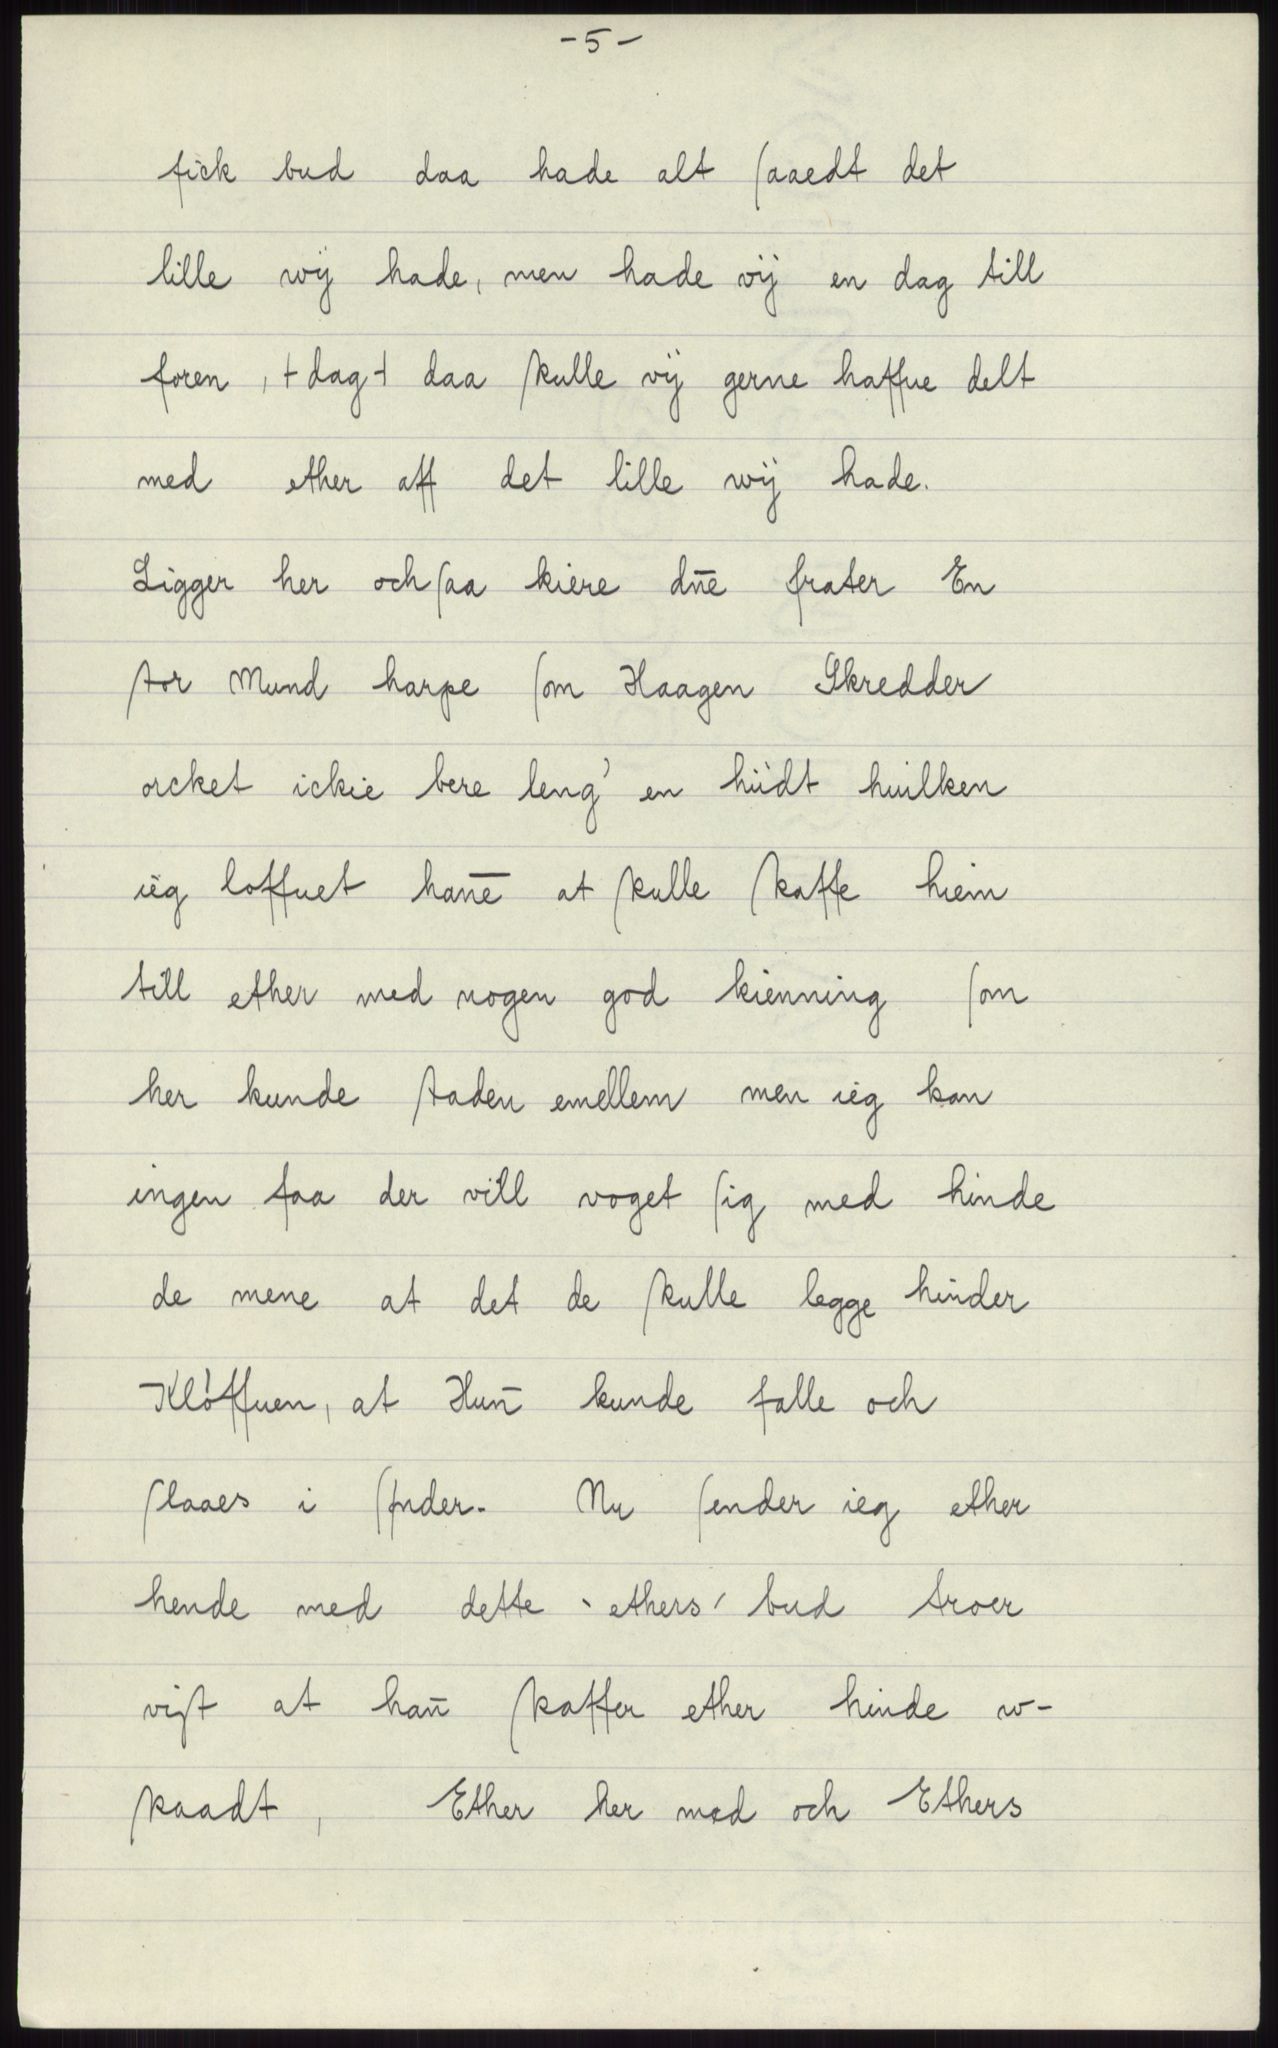 -5-
fick bud daa hade alt ſaaedt det
lille wÿ hade, men hade vÿ en dag till
foren, ⸠dag⸡ daa ſkulle vÿ gerne haffue delt
med ether aff det lille wÿ hade.
Ligger her och ſaa kiere dn̄e frater En
ſtor Mund harpe ſom Haagen Skredder
orcket ickie bere leng' en hiidt huilken
ieg loffuet han̄e at ſkulle ſkaffe hiem
till ether med nogen god kienning ſom
her kunde ſtaden emellem men ieg kan
ingen faa der vill voget ſig med hinde
de mene at det de ſkulle legge hinder
Kløffuen, at Hun̄ kunde falle och
ſlaaes i ſønder. Nu ſender ieg ether
hende med dette ˋethersˊ bud troer
viſt at han̄ ſkaffer ether hinde w-
ſkaadt, Ether her med och Ethers